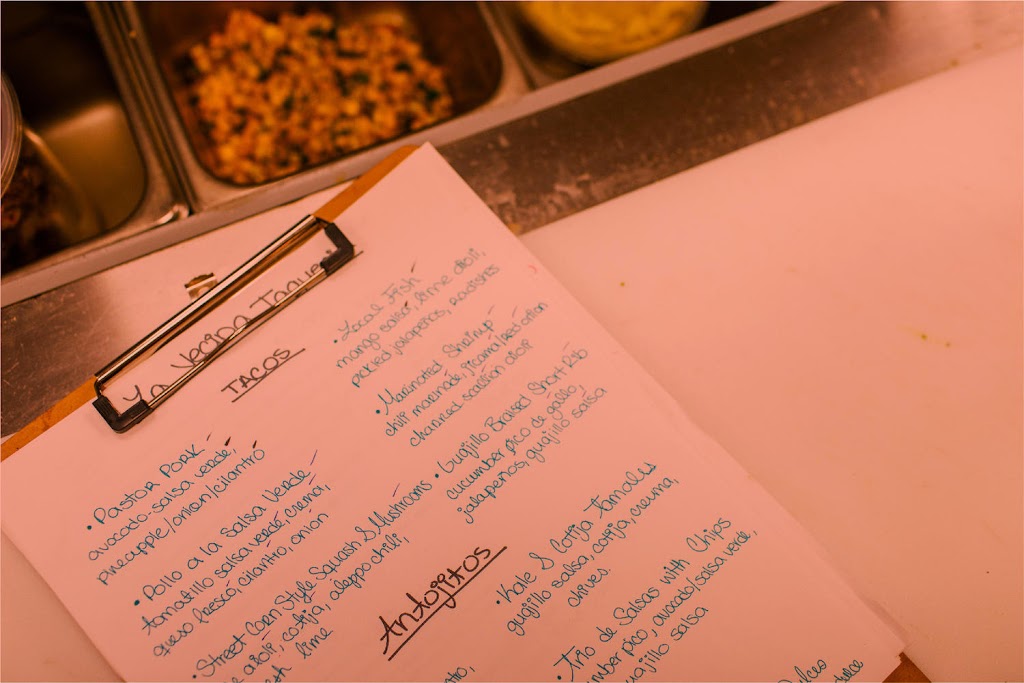 Ya Vecina
TACOS
• Pastor Pork -
avocado-salsa verde,
pineapple/onion/cilantro
• Pollo a la Salsa Verde -
tomatillo salsa verde, crema,
queso fresco, cilantro, onion
• Street Corn Style Squash & Mushrooms
aioli, cotija, aleppo chili,
lime
• Local Fish -
mango salsa, lime aioli,
pickled jalapeños, radishes
• Marinated Shrimp -
chili marinade, jicama/red onion
charred scallion aioli
• Guajillo Braised Short Rib
cucumber pico de gallo,
jalapeños, guajillo salsa
Antojitos
• Kale & Cotija Tamales
guajillo salsa, cotija, crema,
chives.
• Trio de Salsas with Chips
pico, avocado/salsa verde,
salsa